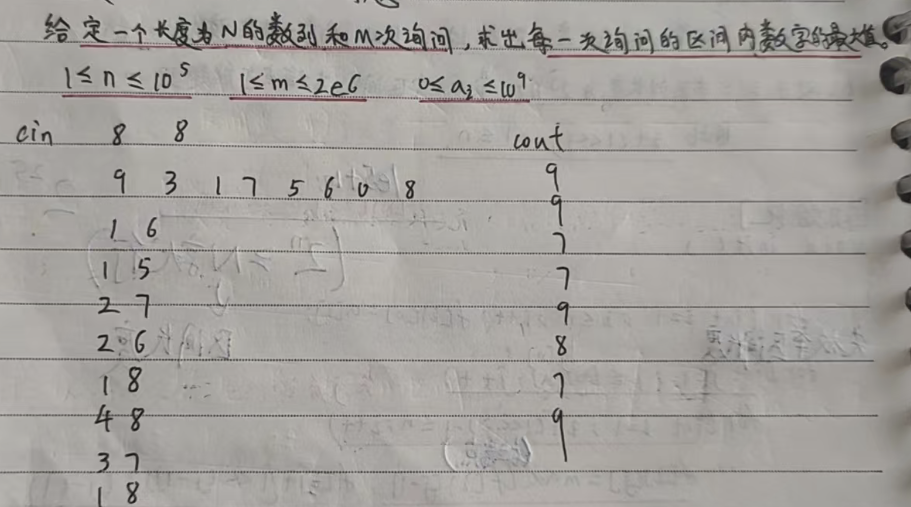 给定一个长度为N的数列和M次询问,求出每一次询问的区间内数字的最大值。
1≤n≤10^5 1≤m≤2e6 0≤aᵢ≤10^9
cin 8 8 cout
9 3 1 7 5 6 0 8 9
1 6 9
1 5 7
2 7 7
2 6 9
1 8 8
4 8 7
3 7 9
1 8